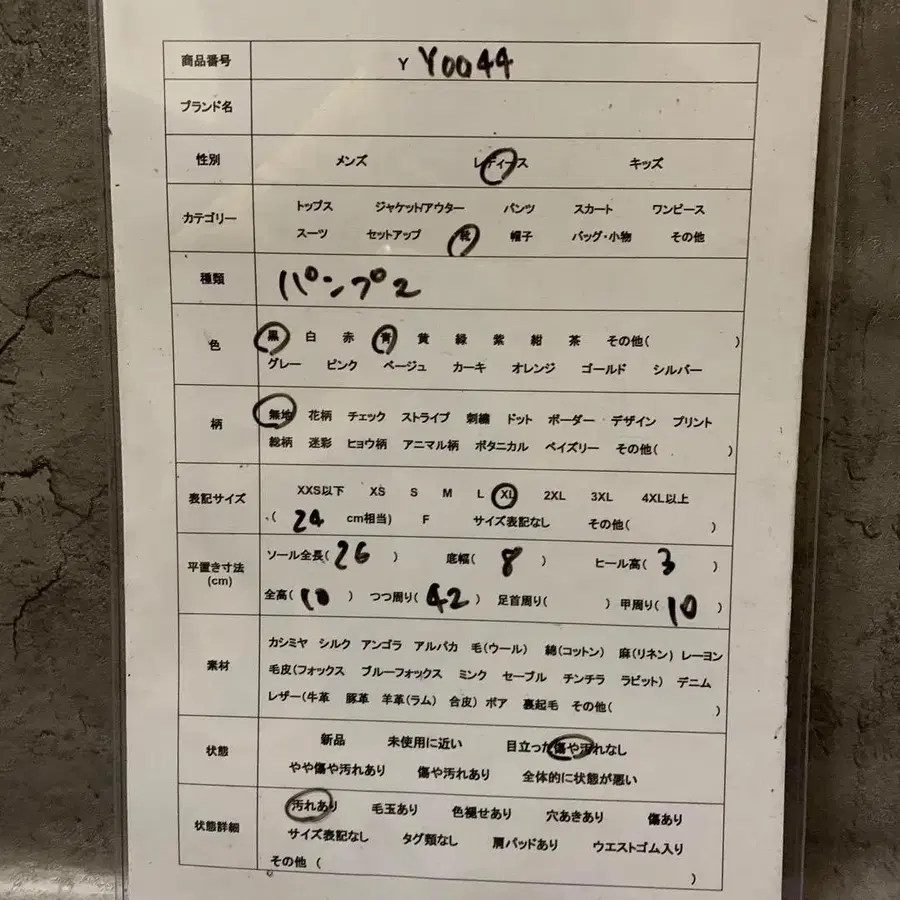 商品番号 Y Y0044
ブランド名
性別 メンズ レディース キッズ
カテゴリー トップス ジャケット/アウター パンツ スカート ワンピース
スーツ セットアップ 靴 帽子 バッグ・小物 その他
種類 パンプス
色 黒 白 赤 青 黄 緑 紫 紺 茶 その他( )
グレー ピンク ベージュ カーキ オレンジ ゴールド シルバー
柄 無地 花柄 チェック ストライプ 刺繍 ドット ボーダー デザイン プリント
総柄 迷彩 ヒョウ柄 アニマル柄 ボタニカル ペイズリー その他( )
表記サイズ XXS以下 XS S M L XL 2XL 3XL 4XL以上
( 24 cm相当) F サイズ表記なし その他( )
平置き寸法 (cm) ソール全長( 26 ) 底幅( 8 ) ヒール高( 3 )
全高( 10 ) つつ周り( 42 ) 足首周り( ) 甲周り( 10 )
素材 カシミヤ シルク アンゴラ アルパカ 毛(ウール) 綿(コットン) 麻(リネン) レーヨン
毛皮(フォックス ブルーフォックス ミンク セーブル チンチラ ラビット) デニム
レザー(牛革 豚革 羊革(ラム) 合皮) ボア 裏起毛 その他( )
状態 新品 未使用に近い 目立った傷や汚れなし
やや傷や汚れあり 傷や汚れあり 全体的に状態が悪い
状態詳細 汚れあり 毛玉あり 色褪せあり 穴あきあり 傷あり
サイズ表記なし タグ類なし 肩パッドあり ウエストゴム入り
その他 ( )